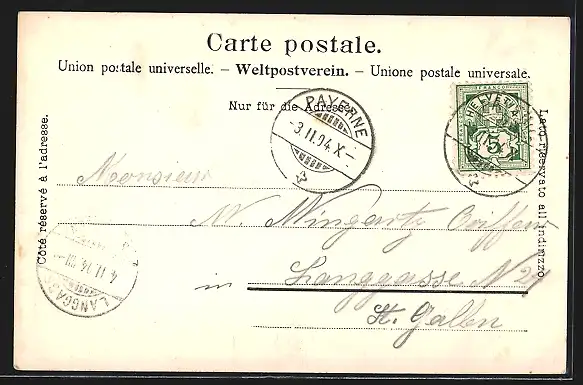 Carte postale.
Union postale universelle. – Weltpostverein. – Unione postale universale.
Nur für die Adresse.
PAYERNE
-3.II.04.X-
HELVETIA
5
Côté réservé à l'adresse.
Lato riservato all'indirizzo
Monsieur
W. Wingartz Coiffeur
in Langgasse N 24
St. Gallen
LANGGAS
4.II.04.VII-